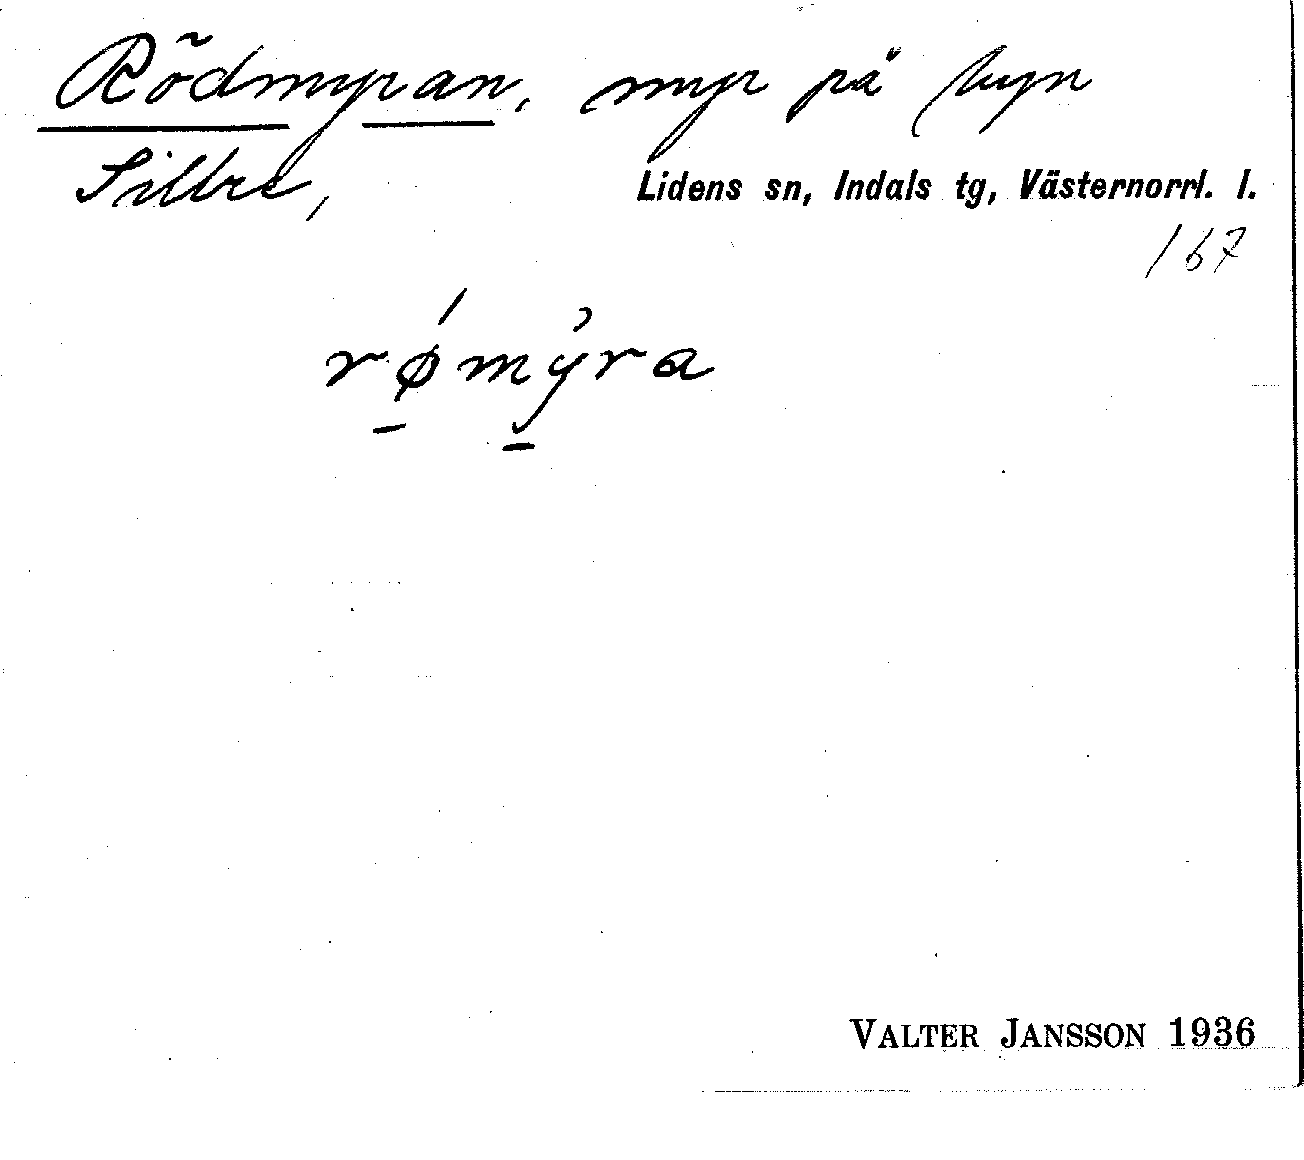 Rödmyran, myr på byn
Sillre,
Lidens sn, Indals tg, Västernorrl. l.
167
rømyra
VALTER JANSSON 1936